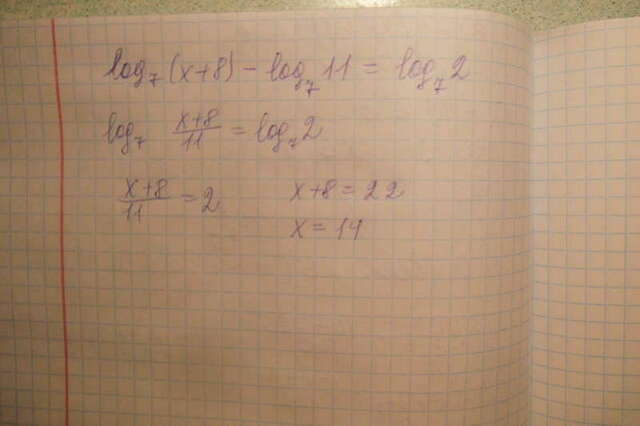 log₇(x+8) - log₇11 = log₇2
log₇ (x+8)/11 = log₇2
(x+8)/11 = 2 x+8 = 22
x = 14